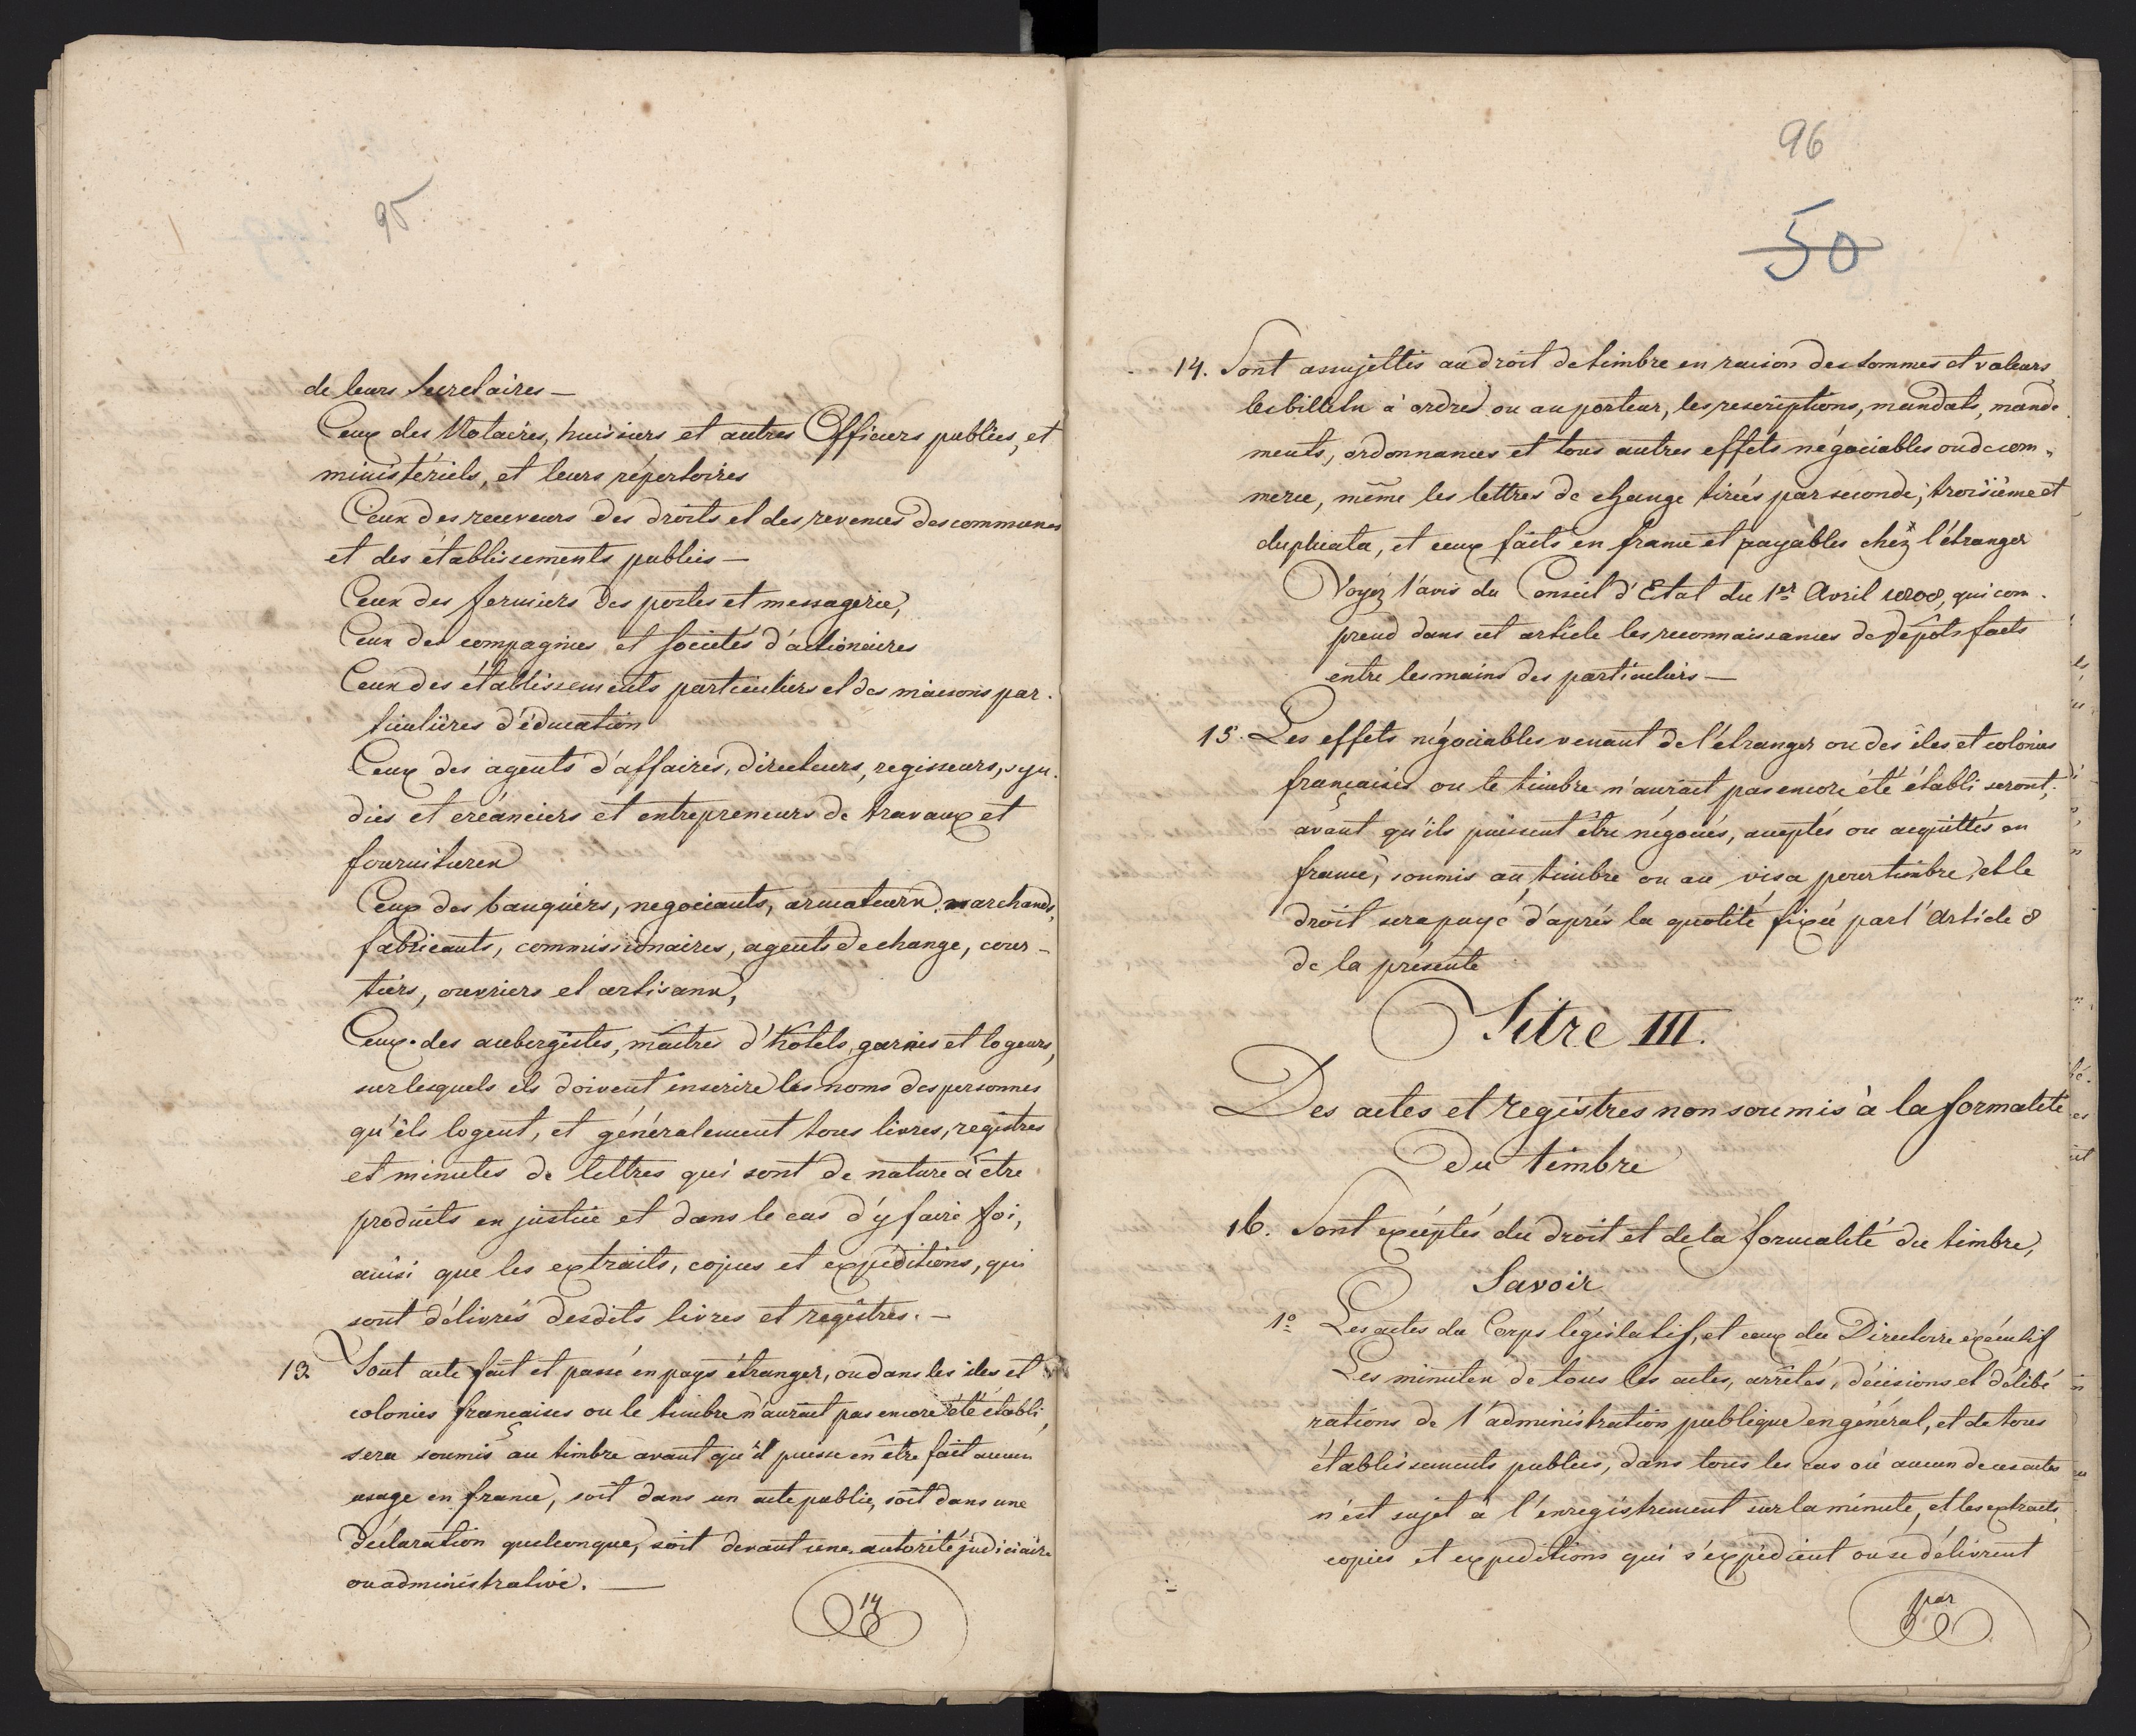 95
de leurs Secretaires —
Ceux des Notaires, huissiers et autres Officiers publics, et
ministériels, et leurs répertoires
Ceux des receveurs des droits et des revenues des communes
et des établissements publics —
Ceux des fermiers des postes et messagerie,
Ceux des compagnies et societés d'actionaires
Ceux des établissements particuliers et des maisons par-
ticulières d'éducation
Ceux des agents d'affaires, directeurs, regisseurs, syn-
dics et créanciers et entrepreneurs de travaux et
fournitures
Ceux des banquiers, negociants, armateurs, marchands,
fabricants, commissionaires, agents de change, cour-
tiers, ouvriers et artisans,
Ceux des aubergistes, maîtres d'hôtels, garnis et logeurs,
sur lesquels ils doivent inscrire les noms des personnes
qu'ils logent, et généralement tous livres, registres
et minutes de lettres qui sont de nature à être
produits en justice et dans le cas d'y faire foi,
ainsi que les extraits, copies et expéditions, qui
sont délivrés desdits livres et registres. —
13. Tout acte fait et passé en pays étranger, ou dans les îles et
colonies françaises ou le timbre n'aurait pas encore été établi,
sera soumis au timbre avant qu'il puisse en être fait aucun
usage en france, soit dans un acte public, soit dans une
déclaration quelconque, soit devant une autorité judiciaire
ou administrative. —
14
96
50
14. Sont assujettis au droit de timbre en raison des sommes et valeurs,
les billets à ordre ou au porteur, les rescriptions, mandats, mande-
ments, ordonnances et tous autres effets négociables ou de com-
merce, même les lettres de change tirées par seconde, troisième et
duplicata, et ceux faits en france et payables chéz l'étranger
Voyéz l'avis du Conseil d'Etat du 1er Avril 1808, qui com-
prend dans cet article les reconnaissances de dépôts faits
entre les mains des particuliers —
15. Les effets négociables venant de l'étranger ou des îles et colonies
françaises ou le timbre n'aurait pas encore été établi seront,
avant qu'ils puissent être négociés, acceptés ou acquittés en
france, soumis au timbre ou au visa pour timbre, et le
droit sera payé d'après la quotité fixée par l'Article 8
de la présente
Titre III.
Des actes et registres non soumis à la formalité
du timbre
16. Sont exceptés du droit et de la formalité du timbre,
Savoir
1o Les actes du Corps législatif, et ceux du Directoire exécutif
Les minutes de tous les actes, arrêtés, décisions et délibé
rations de l'administration publique en général, et de tous
établissements publics, dans tous les cas où aucun de ces actes
n'est sujet à l'enregistrement sur la minute, et les extraits,
copies et expéditions qui s'expédient ou se délivrent
par